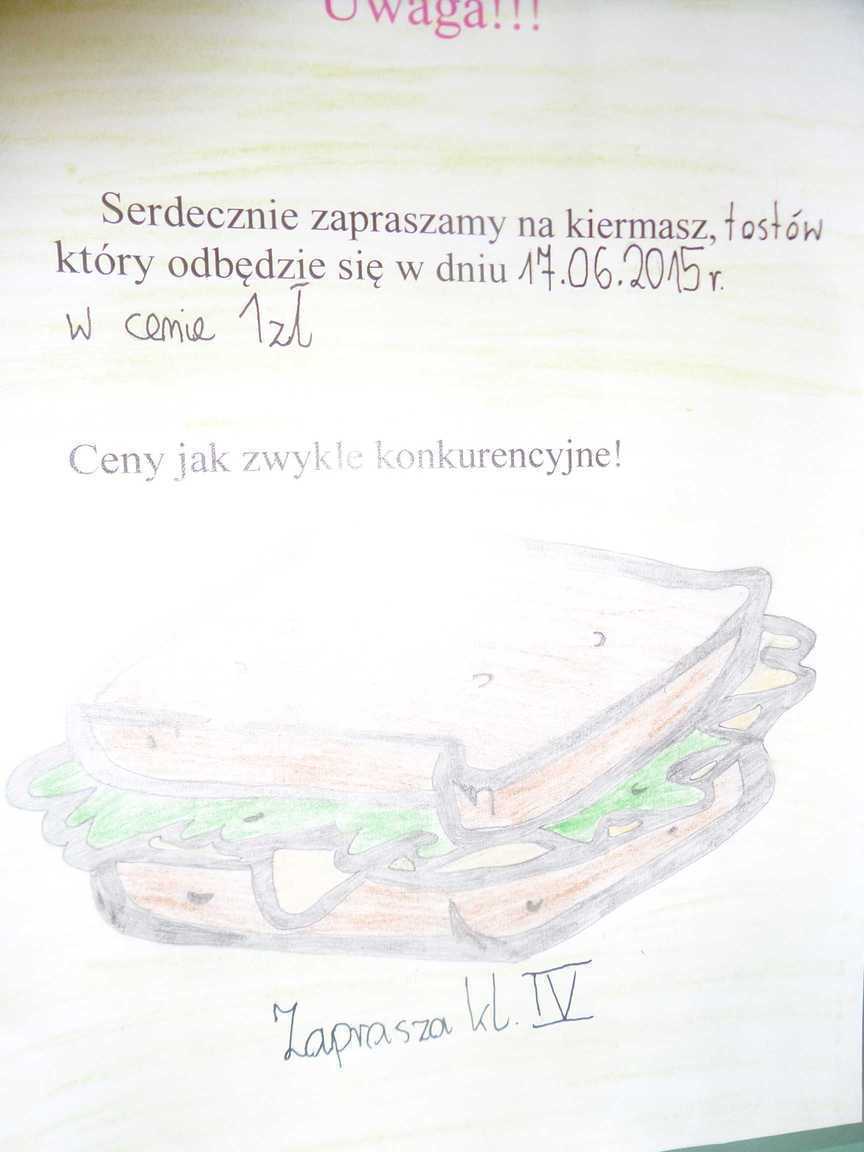 Uwaga!!!
Serdecznie zapraszamy na kiermasz, tostów
który odbędzie się w dniu 17.06.2015 r.
w cenie 1zł
Ceny jak zwykle konkurencyjne!
Zaprasza kl. IV